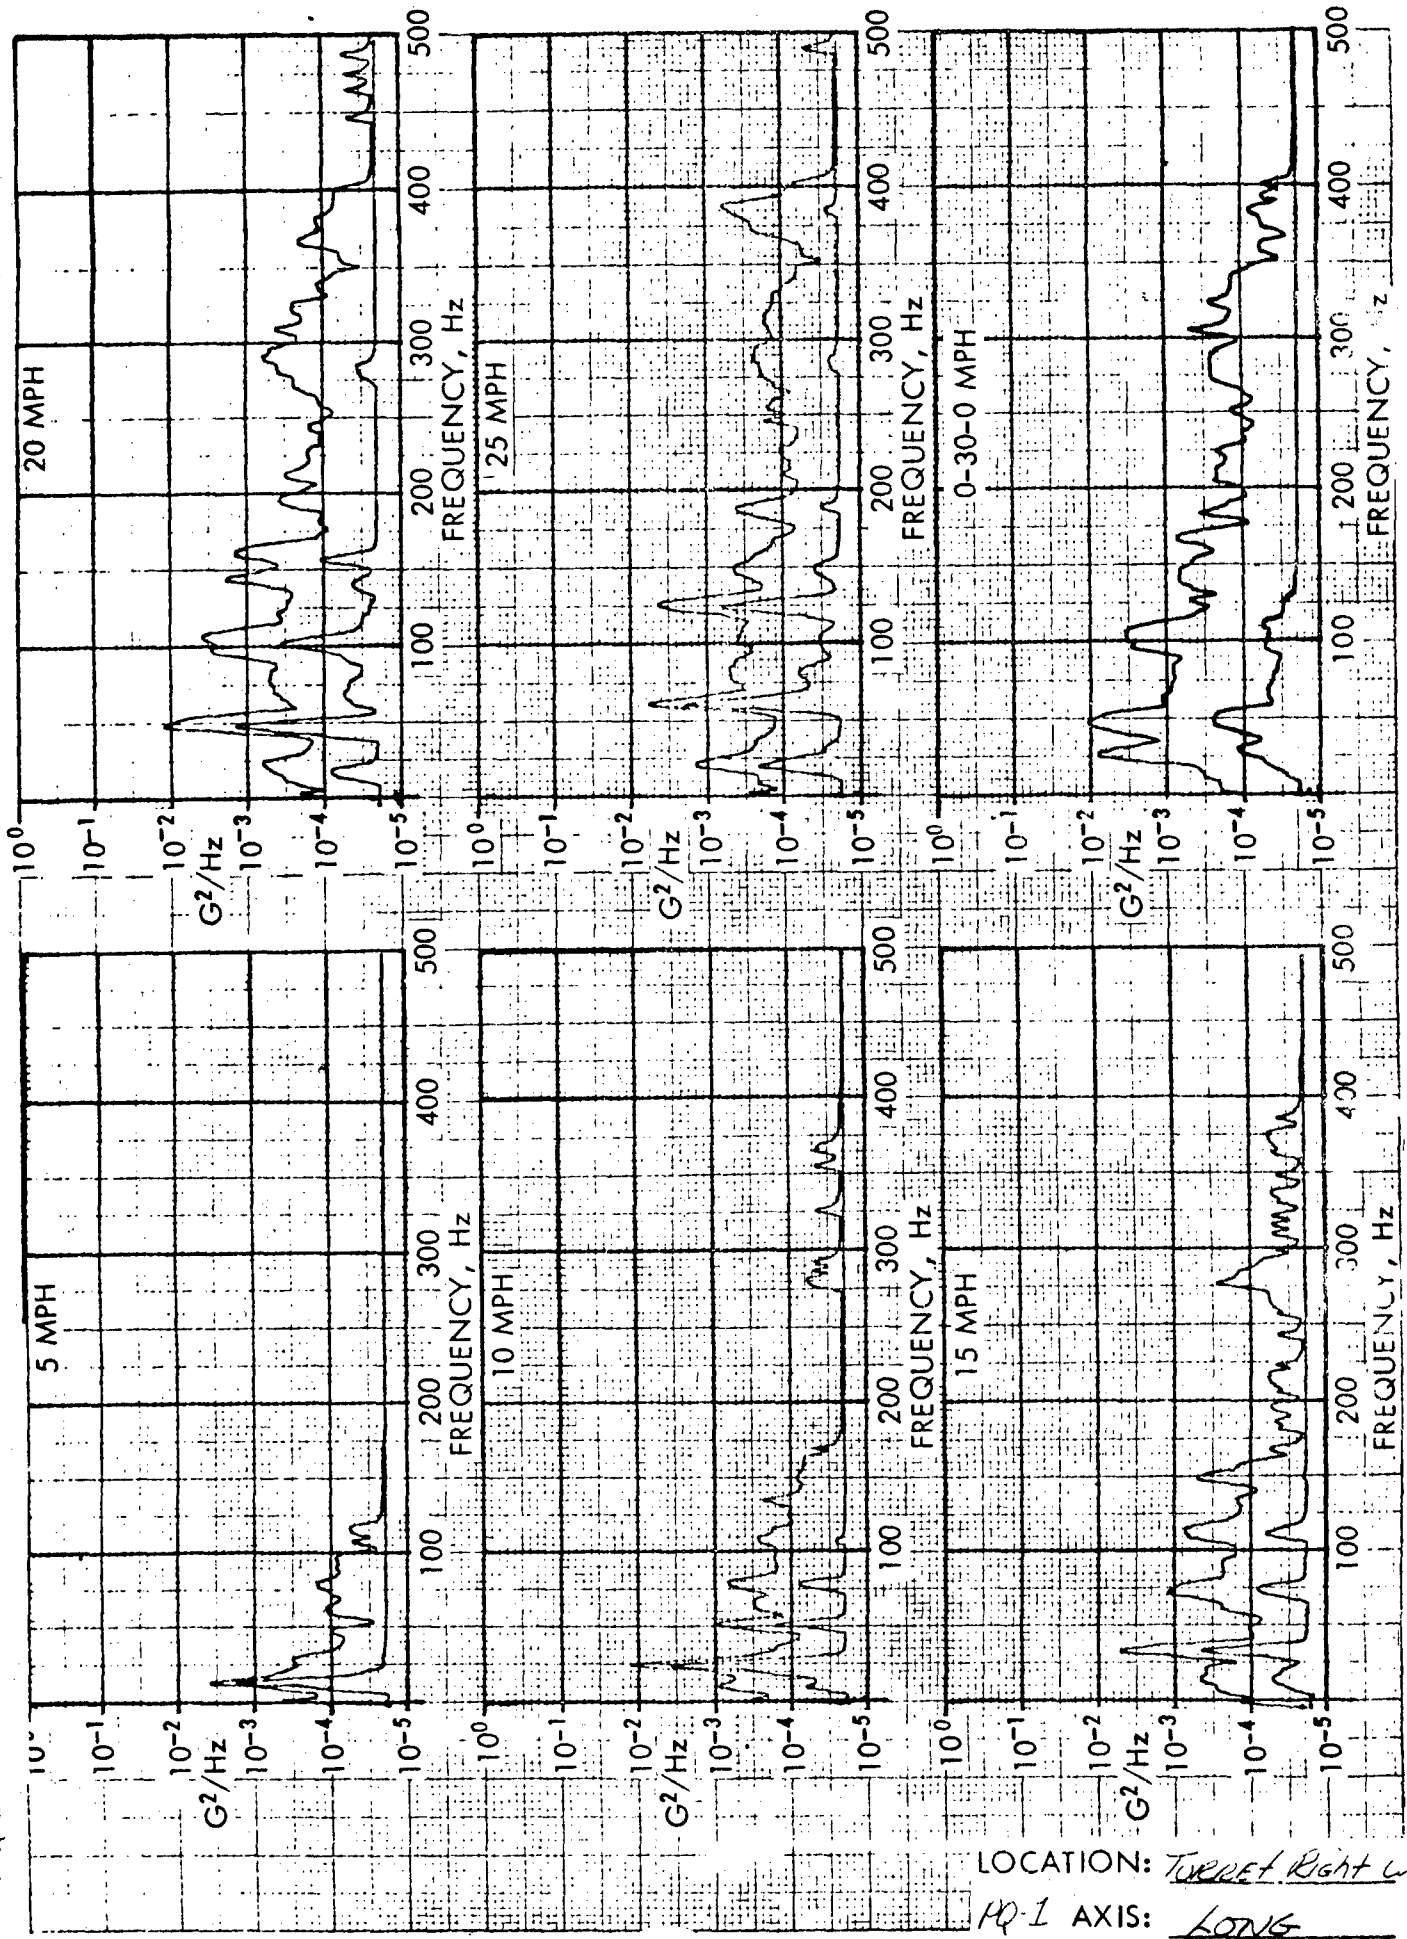 5 MPH
10⁰
10⁻¹
10⁻²
10⁻³
10⁻⁴
10⁻⁵
G²/Hz
100
200
300
400
500
FREQUENCY, Hz
20 MPH
10⁰
10⁻¹
10⁻²
10⁻³
10⁻⁴
10⁻⁵
G²/Hz
100
200
300
400
500
FREQUENCY, Hz
10 MPH
10⁰
10⁻¹
10⁻²
10⁻³
10⁻⁴
10⁻⁵
G²/Hz
100
200
300
400
500
FREQUENCY, Hz
25 MPH
10⁰
10⁻¹
10⁻²
10⁻³
10⁻⁴
10⁻⁵
G²/Hz
100
200
300
400
500
FREQUENCY, Hz
15 MPH
10⁰
10⁻¹
10⁻²
10⁻³
10⁻⁴
10⁻⁵
G²/Hz
100
200
300
400
500
FREQUENCY, Hz
0-30-0 MPH
10⁰
10⁻¹
10⁻²
10⁻³
10⁻⁴
10⁻⁵
G²/Hz
100
200
300
400
500
FREQUENCY, z
LOCATION: TURRET Right
PQ-1 AXIS: LONG